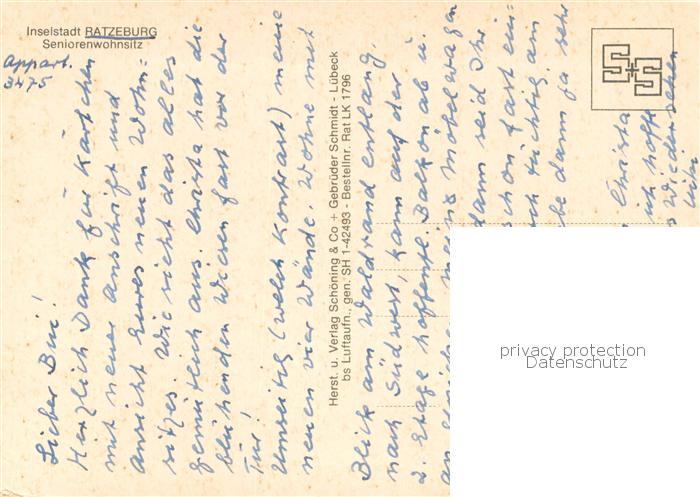 Inselstadt RATZEBURG
Seniorenwohnsitz
Appart.
3475
Lieber Bui!
Herzlich Dank für Kärtchen
mit neuer Anschrift und
Ansicht Eures neuen Wohn=
sitzes. Wie sieht das alles
gemütlich aus. Christa hat die
blühenden Wiesen fast vor der
Tür!
Umseitig (welch Kontrast) meine
neuen vier Wände. Wohne mit
Herst. u. Verlag Schöning & Co + Gebrüder Schmidt - Lübeck
bs Luftaufn., gen. SH 1-42493 - Bestellnr. Rat LK 1796
Blick am Waldrand entlang,
nach Südwest, kann auf der
2. Etage hoffentl. Balkon ab u.
Möbelwagen
dann seid Ihr
schon fast ein=
tüchtig am
be dann ja sehr
Christa
ich hoffe
Wiedersehen
privacy protection
Datenschutz